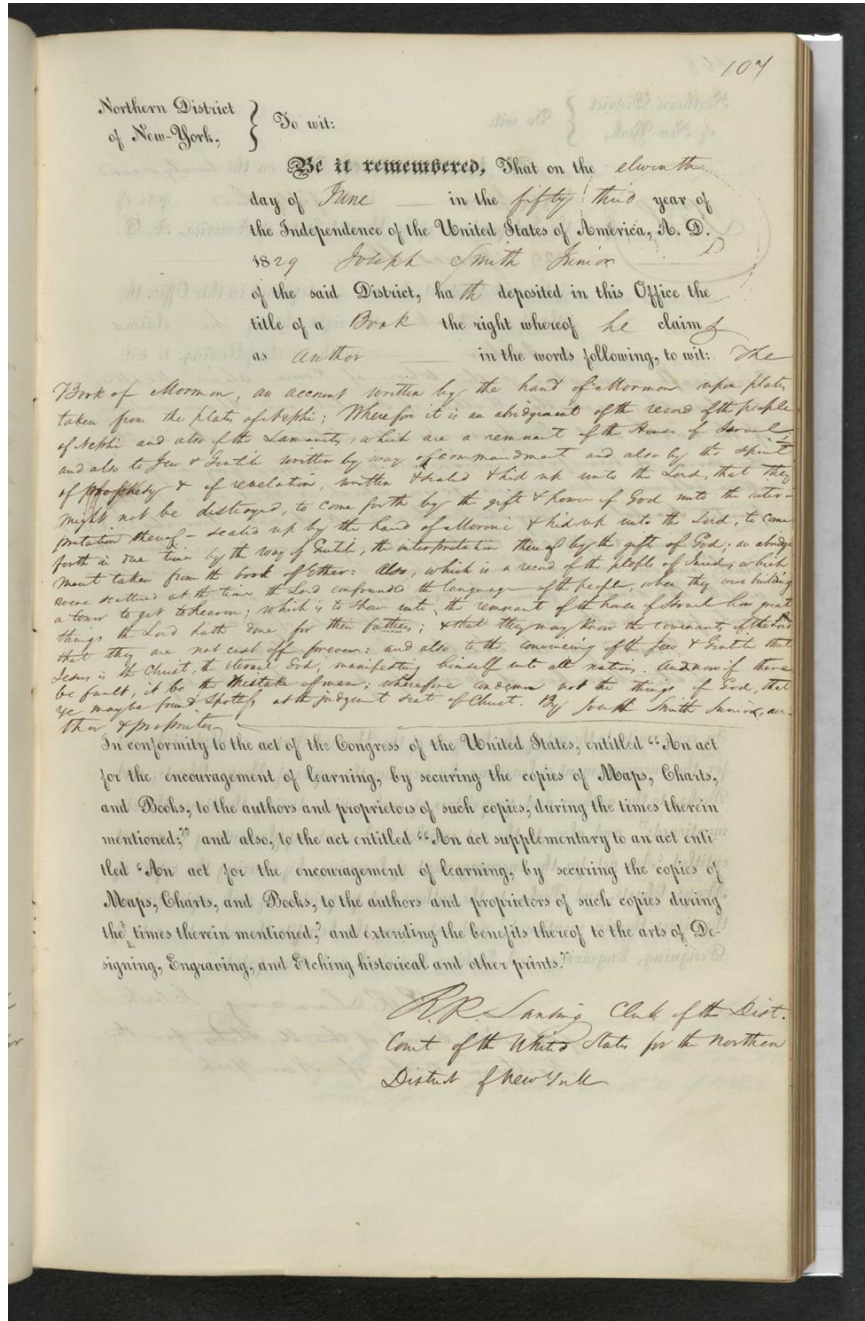 107
Northern District
of New-York,
To wit:
Be it remembered, That on the elventh
day of June in the fifty third year of
the Independence of the United States of America, A. D.
1829 Joseph Smith Junior
of the said District, hath deposited in this Office the
title of a Book the right whereof he claims
as author in the words following, to wit: The
Book of Mormon, an account written by the hand of Mormon upon plates
taken from the plates of Nephi; Wherefore it is an abridgment of the record of the people
of Nephi and also of the Lamanites, which are a remnant of the House of Israel,
and also to Jew & Gentile written by way of commandment and also by the spirit
of prophesy & of revelation, written & sealed & hid up unto the Lord, that they
might not be destroyed, to come forth by the gift & power of God unto the inter-
pretation thereof – sealed up by the hand of Moroni & hid up unto the Lord, to come
forth in due time by the way of Gentile, the interpretation thereof by the gift of God; an abridg
ment taken from the book of Ether: Also, which is a record of the people of Jared, which
were scattered at the time the Lord confounded the language of the people, when they were building
a tower to get to heaven; which is to shew unto the remnant of the house of Israel how great
things the Lord hath done for their fathers; & that they may know the covenants of the Lord
that they are not cast off forever: and also to the convincing of the Jew & Gentile that
Jesus is the Christ, the eternal God, manifesting himself unto all nations. And now if there
be fault, it be the mistake of men; wherefore condemn not the things of God, that
ye may be found spotless at the judgment seat of Christ. By Joseph Smith Junior, au-
thor & proprietor
In conformity to the act of the Congress of the United States, entitled "An act
for the encouragement of learning, by securing the copies of Maps, Charts,
and Books, to the authors and proprietors of such copies, during the times therein
mentioned;" and also, to the act entitled "An act supplementary to an act enti-
tled 'An act for the encouragement of learning, by securing the copies of
Maps, Charts, and Books, to the authors and proprietors of such copies during
the times therein mentioned,' and extending the benefits thereof to the arts of De-
signing, Engraving, and Etching historical and other prints."
R.R. Lansing Clerk of the Dist.
Court of the United States for the Northern
District of New York